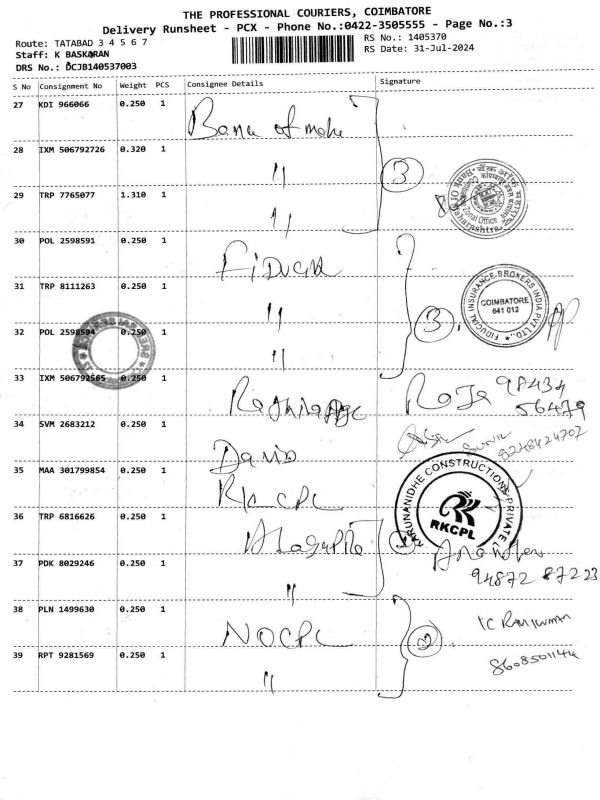 THE PROFESSIONAL COURIERS, COIMBATORE
Delivery Runsheet - PCX - Phone No.:0422-3505555 - Page No.:3
Route: TATABAD 3 4 5 6 7
RS No.: 1405370
Staff: K BASKARAN
RS Date: 31-Jul-2024
DRS No.: DCJB140537003
S No Consignment No Weight PCS Consignee Details Signature
27 KDI 966066 0.250 1 Bank of
28 IXM 506792726 0.320 1 " 3
29 TRP 7765077 1.310 1 "
Zonal Office
30 POL 2598591 0.250 1
31 TRP 8111263 0.250 1 " 3
FIDUCIAL INSURANCE BROKERS INDIA PVT LTD.,
COIMBATORE
641 012
32 POL 2598594 0.250 1 "
33 IXM 506792565 0.250 1 Roja 98434
56479
34 SVM 2683212 0.250 1 David
8248424707
35 MAA 301799854 0.250 1 RKCPL
KARUNANIDHE CONSTRUCTIONS PRIVATE
RKCPL
36 TRP 6816626 0.250 1
37 PDK 8029246 0.250 1 " 94872 87223
38 PLN 1499630 0.250 1 NOCPL 2
39 RPT 9281569 0.250 1 "